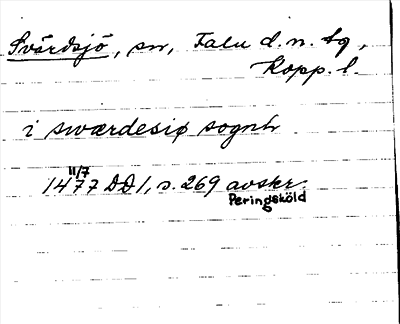 Svärdsjö, sn, Falu d. n. tg,
Kopp. l.
i swærdesiø sognh
11/7
1477 DD1, s. 269 avskr.
Peringsköld